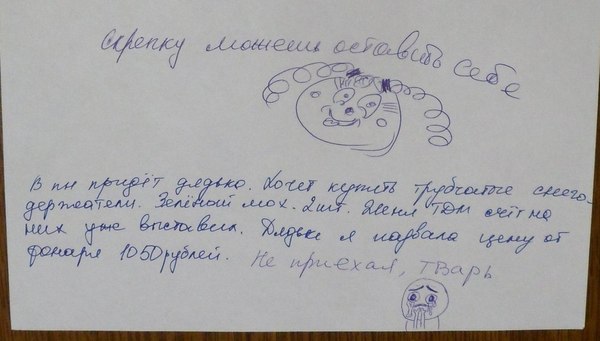 скрепку можешь оставить себе
В пн придёт дядька. Хочет купить трубчатые снего-
держатели. Зелёный мох. 2шт. Женя там счёт на
них уже выставил. Дядьке я назвала цену от
фонаря 1050 рублей. Не приехал, тварь